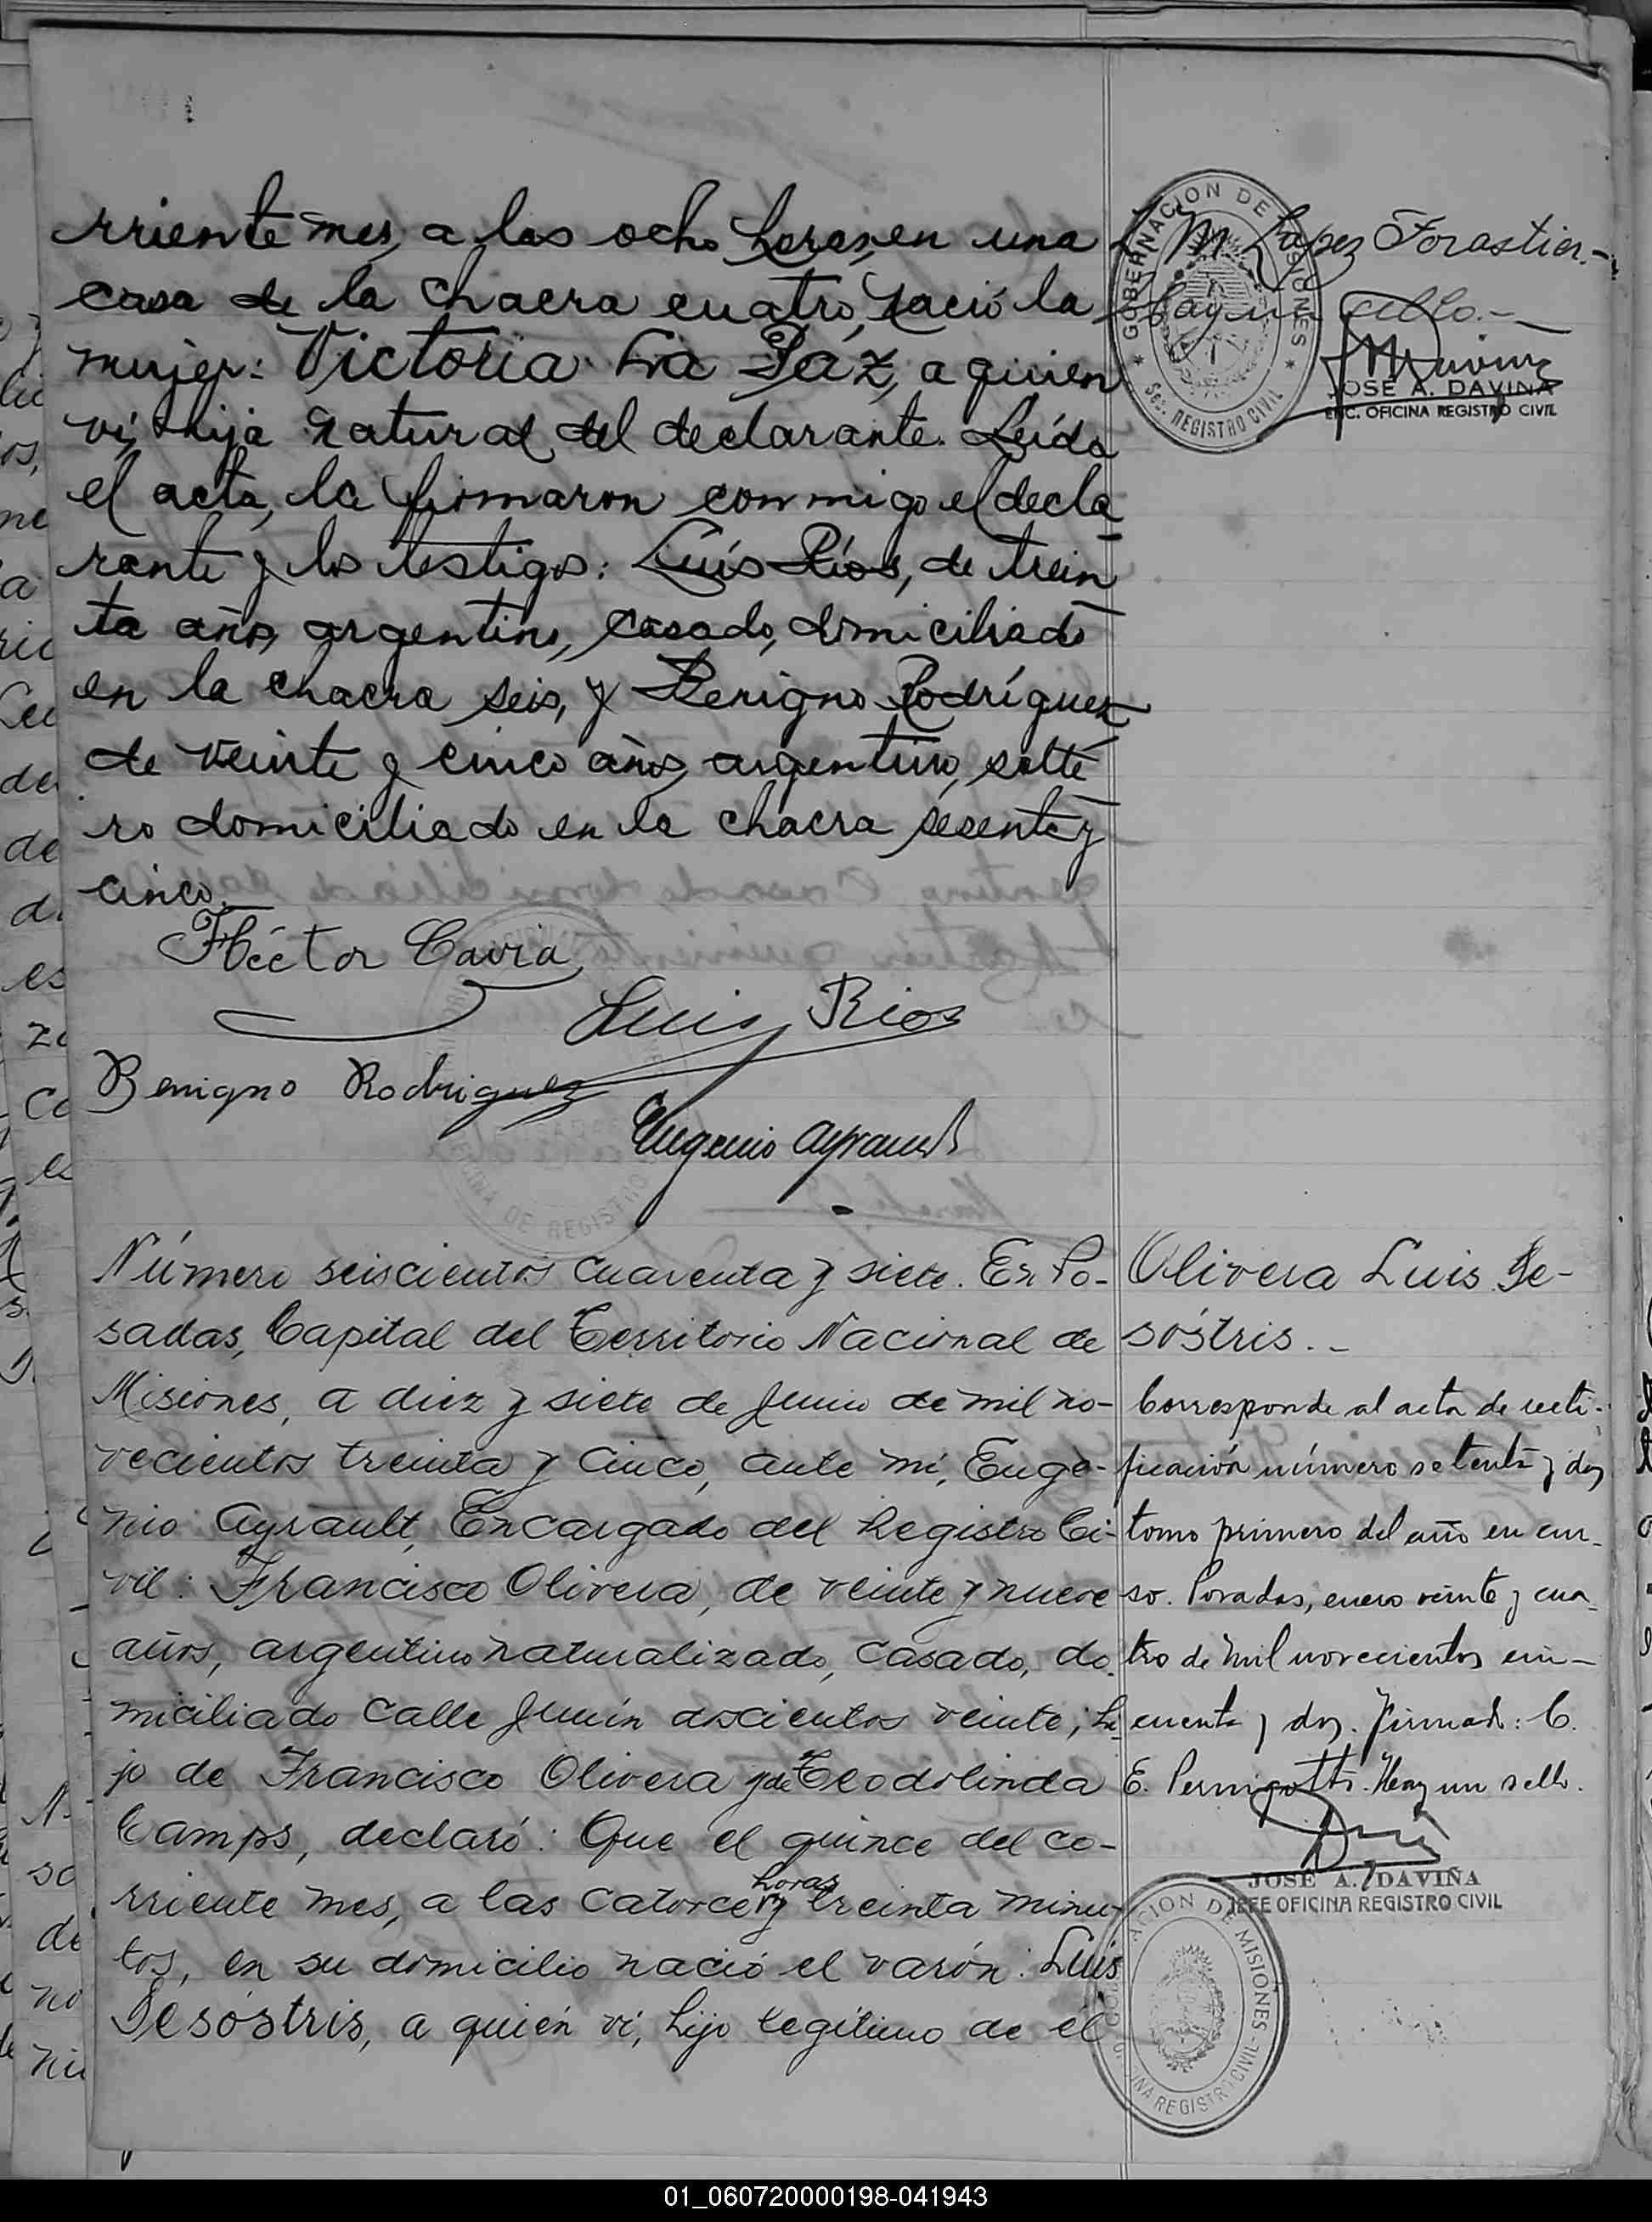 rriente mes, a las ocho horas, en una
casa de la chacra cuatro, nació la
mujer: Victoria La Páz, a quien
ví, hija natural del declarante. Leída
el acta, la firmaron conmigo el decla
rante y los testigos: Luís Ríos, de trein
ta años, argentino, casado, domiciliado
en la chacra seis, y Benigno Rodríguez
de veinte y cinco años, argentino, solte
ro domiciliado en la chacra sesenta y
cinco.
Héctor Cavia
Luis Rios
Benigno Rodriguez
Eugenio Ayrault
M. Lopez Forastier.-
Hay un sello.-
GOBERNACION DE MISIONES
Sec. REGISTRO CIVIL
JOSE A. DAVIÑA
ENC. OFICINA REGISTRO CIVIL
Número seiscientos cuarenta y siete. En Po-
sadas, Capital del Territorio Nacional de
Misiones, a diez y siete de Junio de mil no-
vecientos treinta y cinco, ante mí, Euge-
nio Ayrault, Encargado del Registro Ci-
vil: Francisco Olivera, de veinte y nueve
años, argentino naturalizado, casado, do-
miciliado calle Junín doscientos veinte; hi-
jo de Francisco Olivera y de Teodolinda
Camps, declaró: Que el quince del co-
rriente mes, a las catorce horas y treinta minu-
tos, en su domicilio nació el varón: Luis
Sesóstris, a quién ví, hijo legítimo de él
Olivera Luis Se-
sóstris.-
Corresponde al acta de recti-
ficación número setenta y dos
tomo primero del año en cur-
so. Posadas, enero veinte y cua-
tro de mil novecientos cin-
cuenta y dos. Firmado: C.
E. Pernigotti. Hay un sello.
JOSÉ A. DAVIÑA
JEFE OFICINA REGISTRO CIVIL
GOBERNACION DE MISIONES
OFICINA REGISTRO CIVIL
01_060720000198-041943